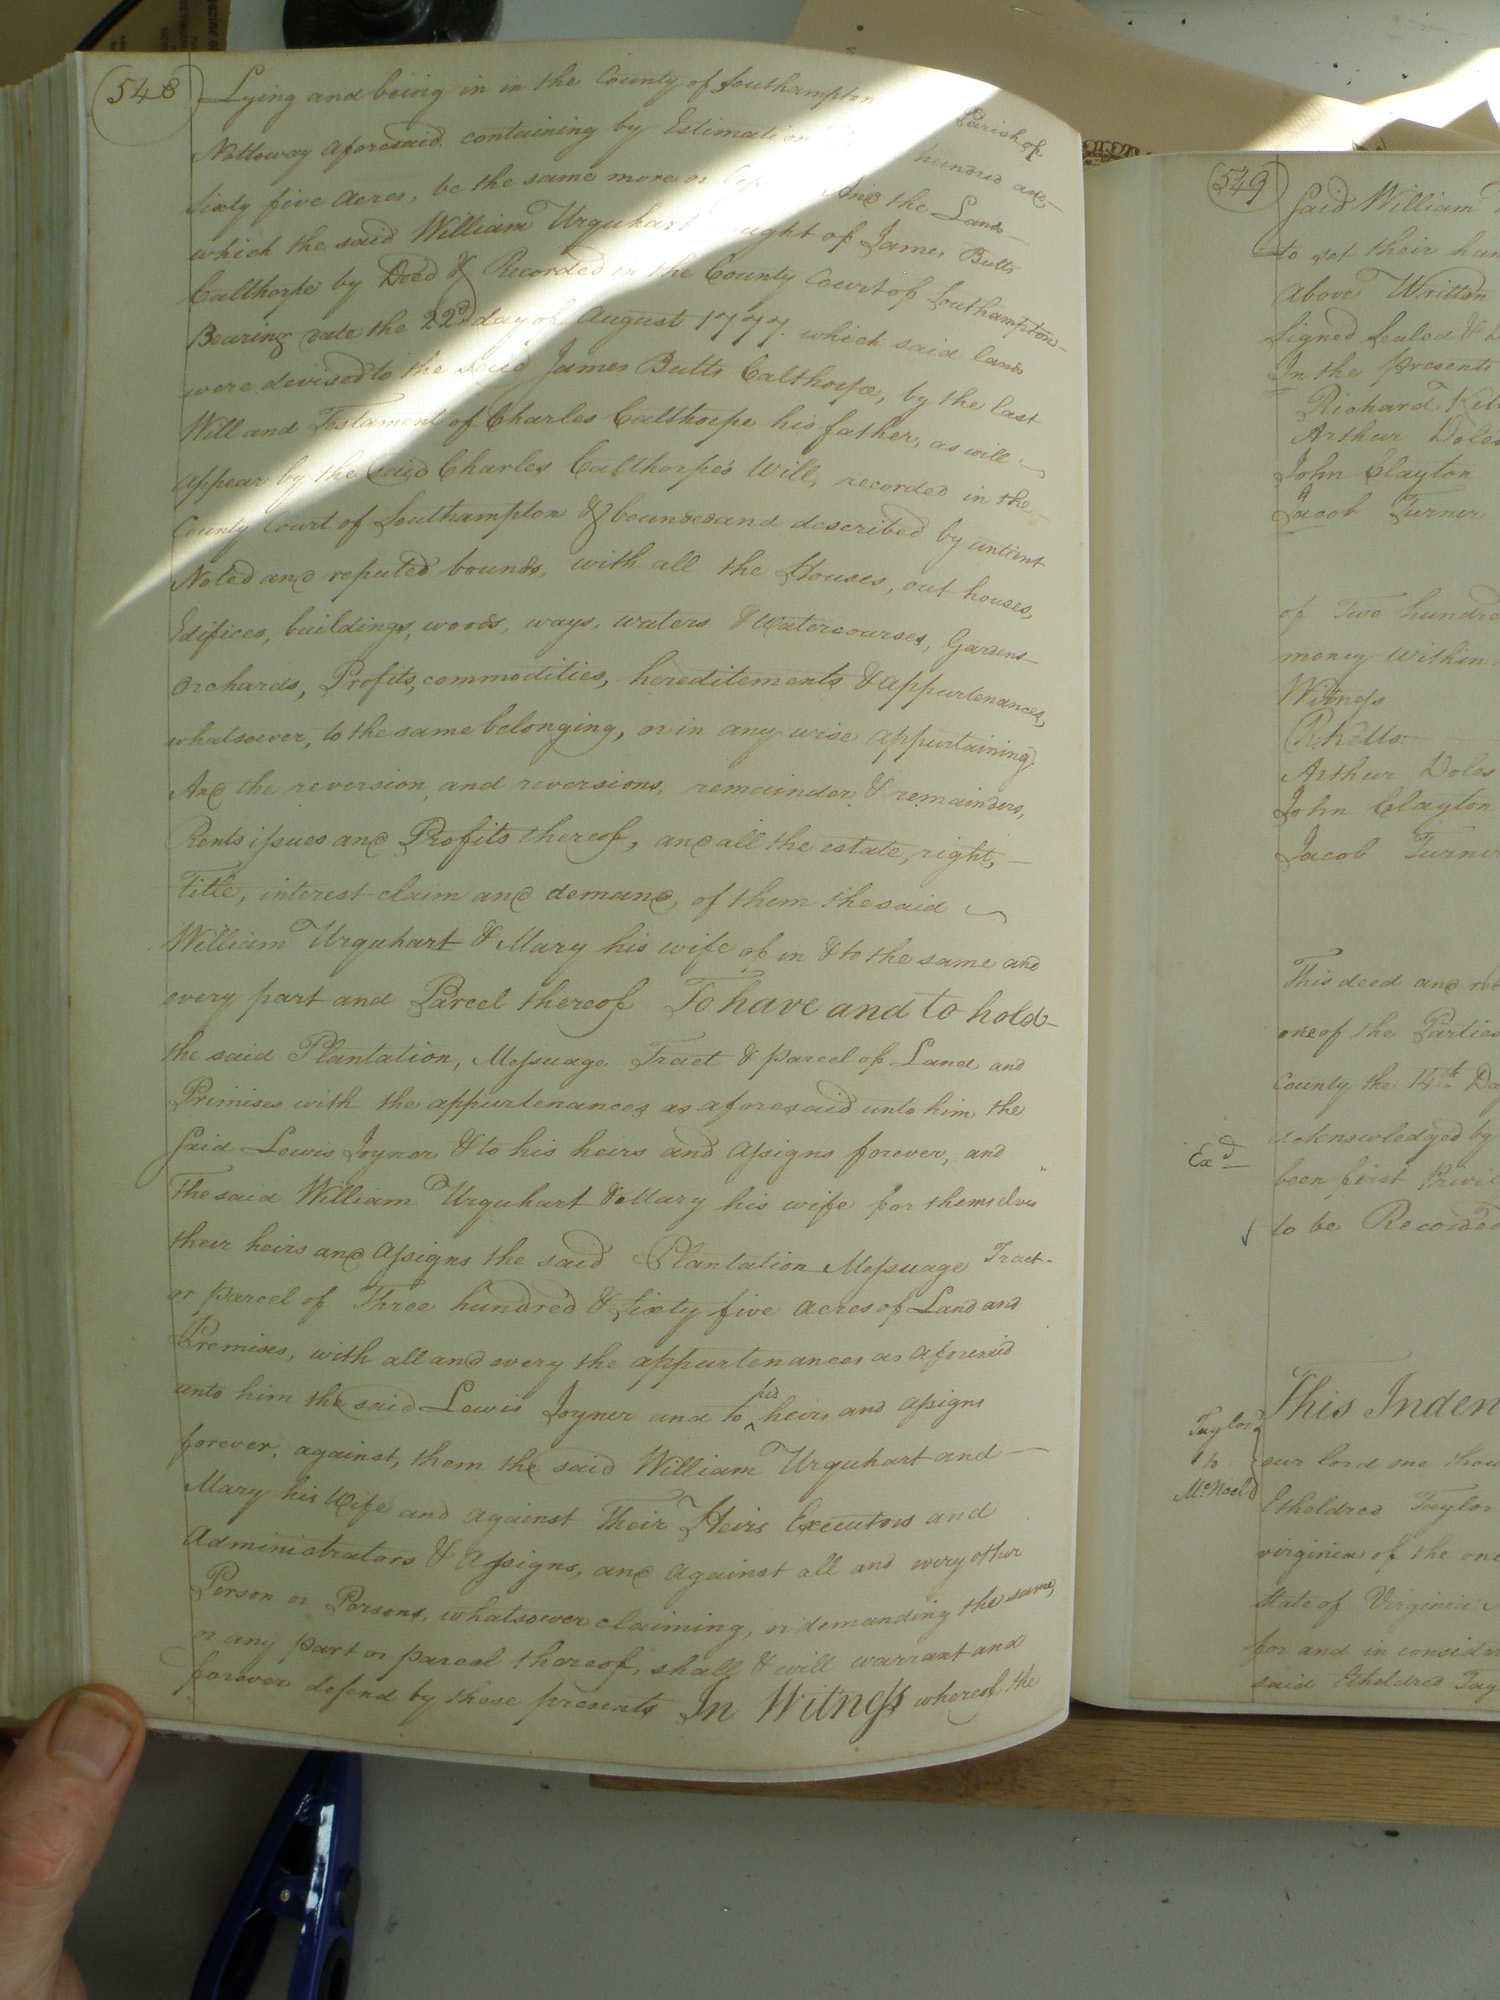 548
Lying and being in in the County of Southampton Parish of
Nottoway aforesaid containing by Estimation hundred and
sixty five Acres, be the same more or less And the Land
which the said William Urquhart bought of James Butts
Calthorpe by Deed & Recorded in the County Court of Southampton
Bearing date the 22d day of August 1777. which said lands
were devised to the said James Butts Calthorpe, by the last
Will and Testament of Charles Calthorpe his father, as will
appear by the said Charles Calthorpe's Will, recorded in the
County Court of Southampton & bounded and described by antient
Noted and reputed bounds, with all the Houses, out houses,
Edifices, buildings, woods, ways, waters & Watercourses, Gardens
Orchards, Profits, commodities, hereditements & appurtenances,
whatsoever, to the same belonging, or in any wise appurtaining,
And the reversion and reversions, remainder & remainders,
Rents issues and Profits thereof, and all the estate, right,
Title, interest claim and demand, of them the said
William Urquhart & Mary his wife of in & to the same and
every part and Parcel thereof To have and to hold
the said Plantation, Messuage Tract & parcel of Land and
Primises with the appurtenances as aforesaid unto him the
said Lewis Joyner & to his heirs and assigns forever, and
The said William Urquhart & Mary his wife for themselves
their heirs and assigns the said Plantation Messuage Tract
or parcel of Three hundred & Sixty five Acres of Land and
Premises, with all and every the appurtenances as aforesaid
unto him the said Lewis Joyner and to his heirs and assigns
forever, against, them the said William Urquhart and
Mary his Wife and against Their Heirs Executors and
Administrators & Assigns, and against all and every other
Person or Persons, whatsoever claiming, or demanding the same,
or any part or parcel thereof, shall & will warrant and
forever defend by these presents In Witness whereof the
549
Said William
to set their han
above Written
Signed Sealed &
In the Presents
Richard Kel
Arthur Doles
John Clayton
Jacob Turner
of Two hundre
money within
Witness
R. Kello
Arthur Doles
John Clayton
Jacob Turner
This deed and
one of the Parties
County the 14th Da
acknowledged by
Exd
been first Privi
to be Recorded
Taylor
to
McNeeld
This Inden
our lord one thou
Etheldred Taylor
virginia of the one
State of Virginia
for and in consider
said Etheldred Tay